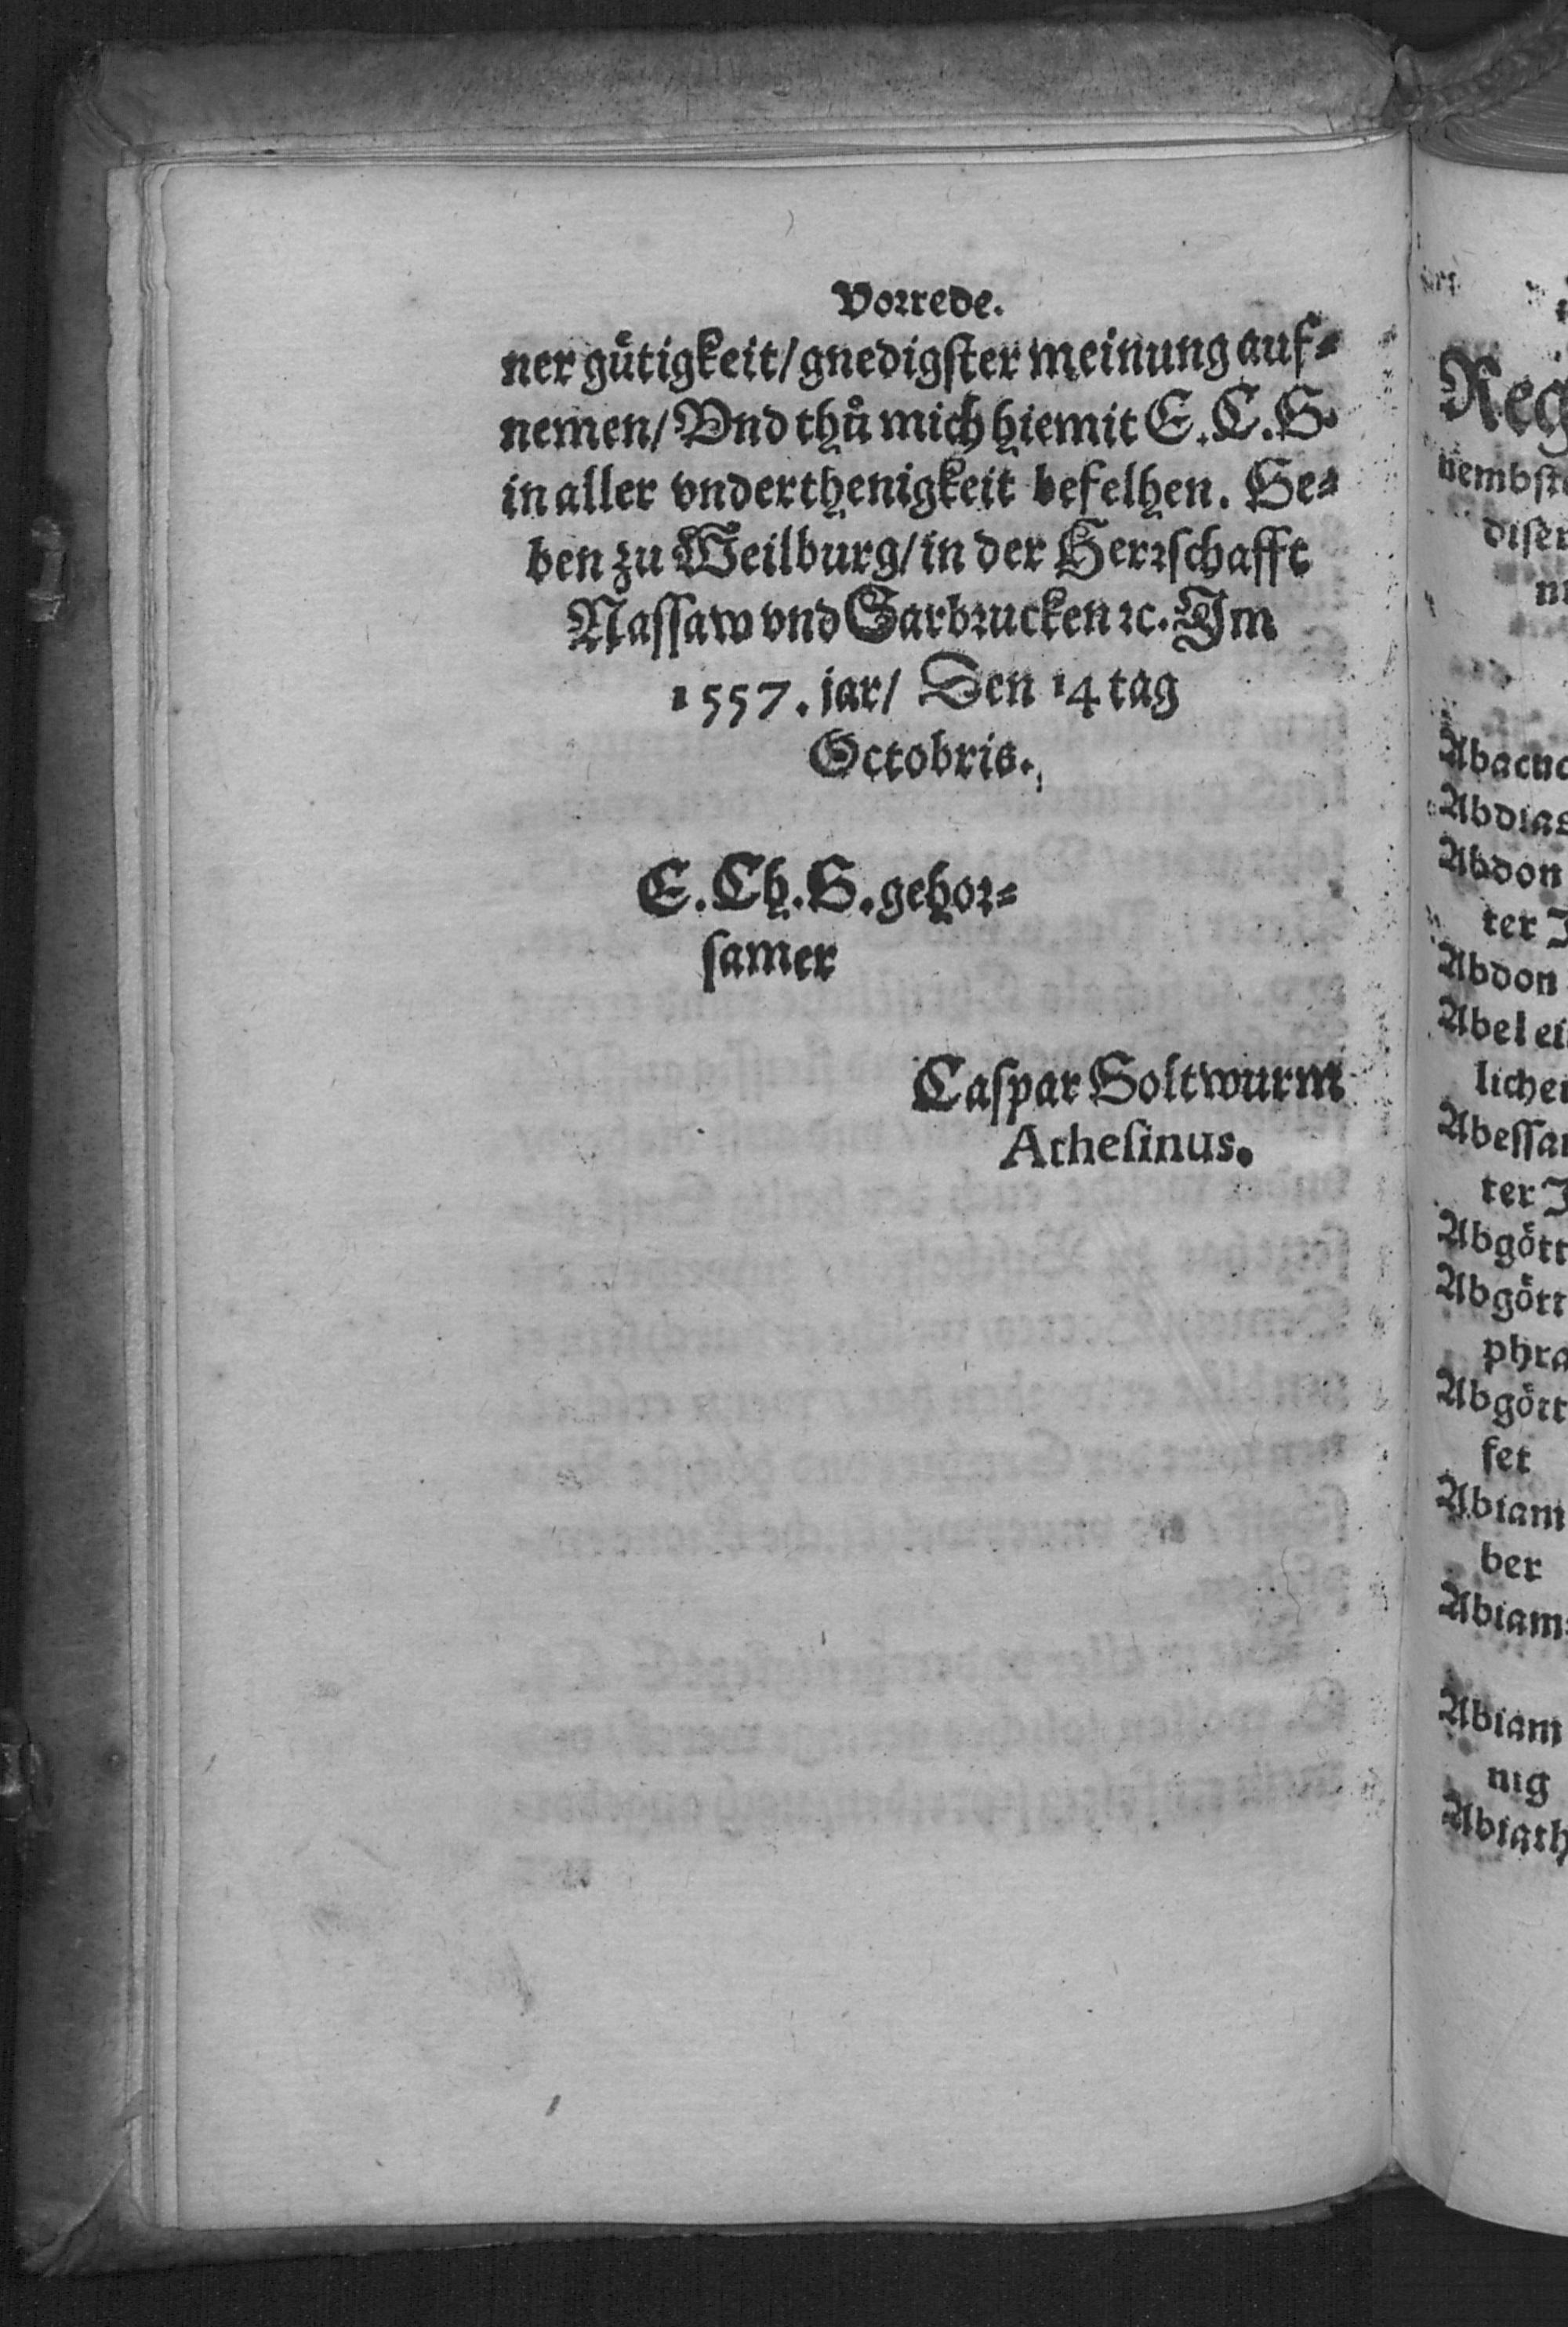 Vorrede.
ner guͤtigkeit/ gnedigster meinung auf⸗
nemen/ Vnd thuͦ mich hiemit E. C. G.
in aller vnderthenigkeit befelhen. Ge⸗
ben zu Weilburg/ in der Herrschafft
Nassaw vnd Sarbrucken ꝛc. Im
1557. jar/ Den 14 tag
Octobris.
E. Ch. G. gehor⸗
samer
Caspar Goltwurm
Athesinus.
Reg
nembst
diser
Abacuc
Abdias
Abdon
ter J
Abdon
Abel ei
lichen
Abessan
ter J
Abgoͤtt
Abgoͤtt
phra
Abgoͤtt
set
Abiam
ber
Abiam
Abiam
nig
Abiath